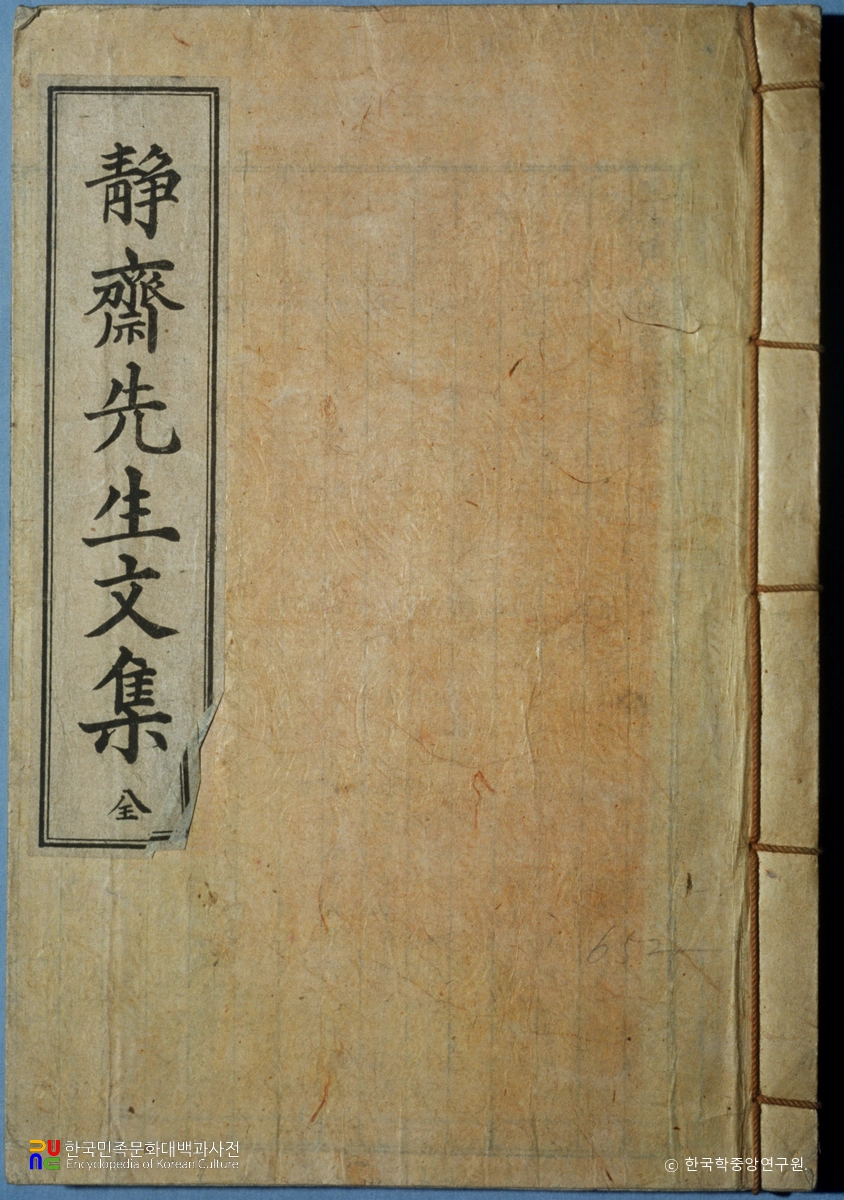 靜齋先生文集 全
652
한국민족문화대백과사전
Encyclopedia of Korean Culture
© 한국학중앙연구원